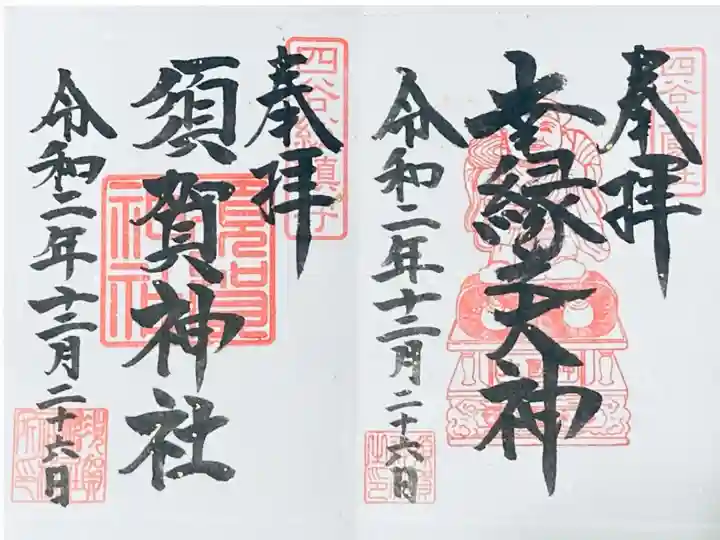 奉拝
四谷大国社
縁之大神
令和二年十二月二十六日
奉拝
四谷総鎮守
須賀神社
須賀神社
令和二年十二月二十六日